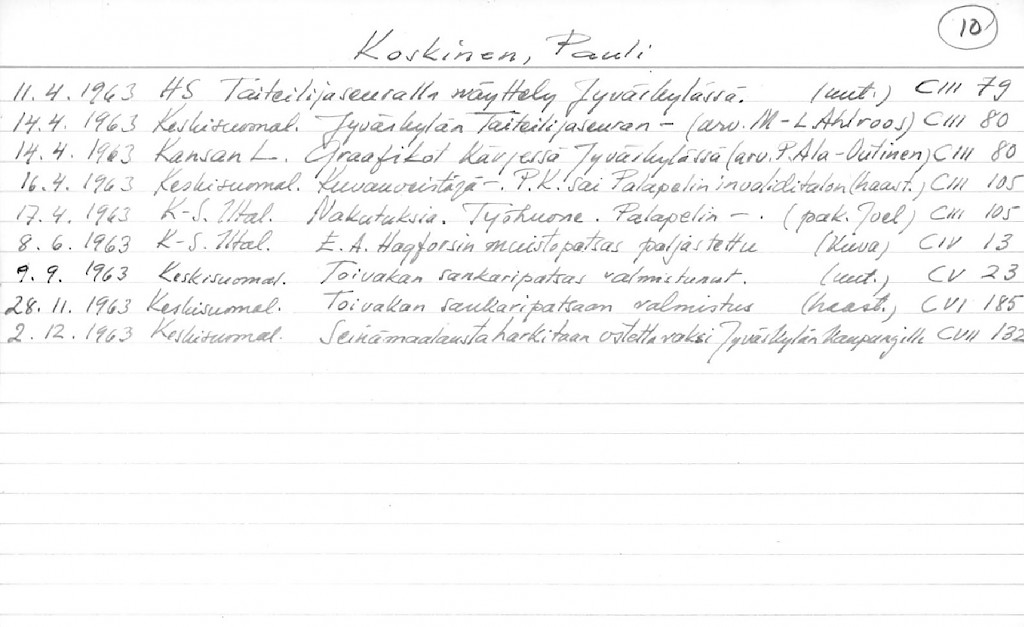 10
Koskinen, Pauli
11.4.1963 HS Taiteilijaseuralla näyttely Jyväskylässä. (uut.) CIII 79
14.4.1963 Keskisuomal. Jyväskylän Taiteilijaseuran - (arv. M-L Ahlroos) CIII 80
14.4.1963 Kansan L. Graafikot kärjessä Jyväskylässä (arv. P. Ala-Outinen) CIII 80
16.4.1963 Keskisuomal. Kuvanveistäjä -. P.K. sai Palapelin invaliditalon (haast.) CIII 105
17.4.1963 K-S. Iltal. Nakutuksia. Työhuone. Palapelin -. (pak. Joel) CIII 105
8.6.1963 K-S. Iltal. E.A. Hagforsin muistopatsas paljastettu (kuva) CIV 13
9.9.1963 Keskisuomal. Toivakan sankaripatsas valmistunut. (uut.) CV 23
28.11.1963 Keskisuomal. Toivakan sankaripatsaan valmistus (haast.) CVI 185
2.12.1963 Keskisuomal. Seinämaalausta harkitaan ostettavaksi Jyväskylän kaupungille CVII 132